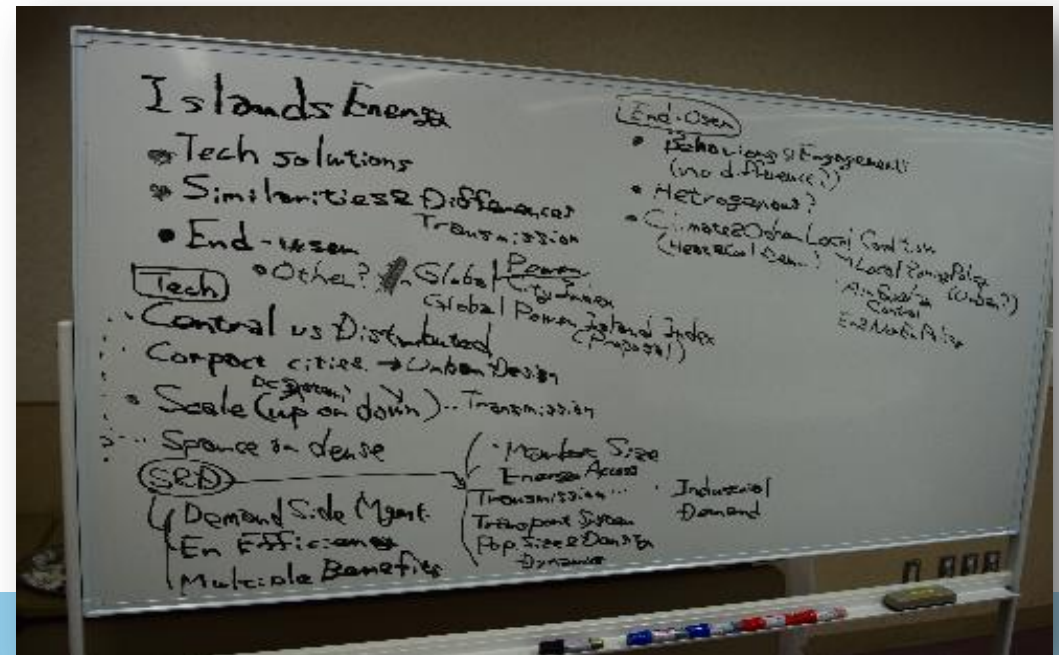 Islands Energy
• Tech solutions
• Similarities & Differences
Transmission
• End-user
• Other? Global Power City Index
Global Power Island Index
(Proposal)
Tech
Central vs Distributed
Compact cities → Urban Design
DC System
• Scale (up or down) -- Transmission
Sparse or dense
S&D
Demand Side Mgmt.
En Efficiency
Multiple Benefits
• Market Size
Energy Access
Transmission ...
Transport System
Pop. Size & Density
Dynamics
• Industrial
Demand
End-User
• Behaviour & Engagement
(no difference?)
• Hetrogenous?
• Climate & Other Local Condition
(Heat & Cool Dem.)
Local Zoning Policy
(Urban?)
Control